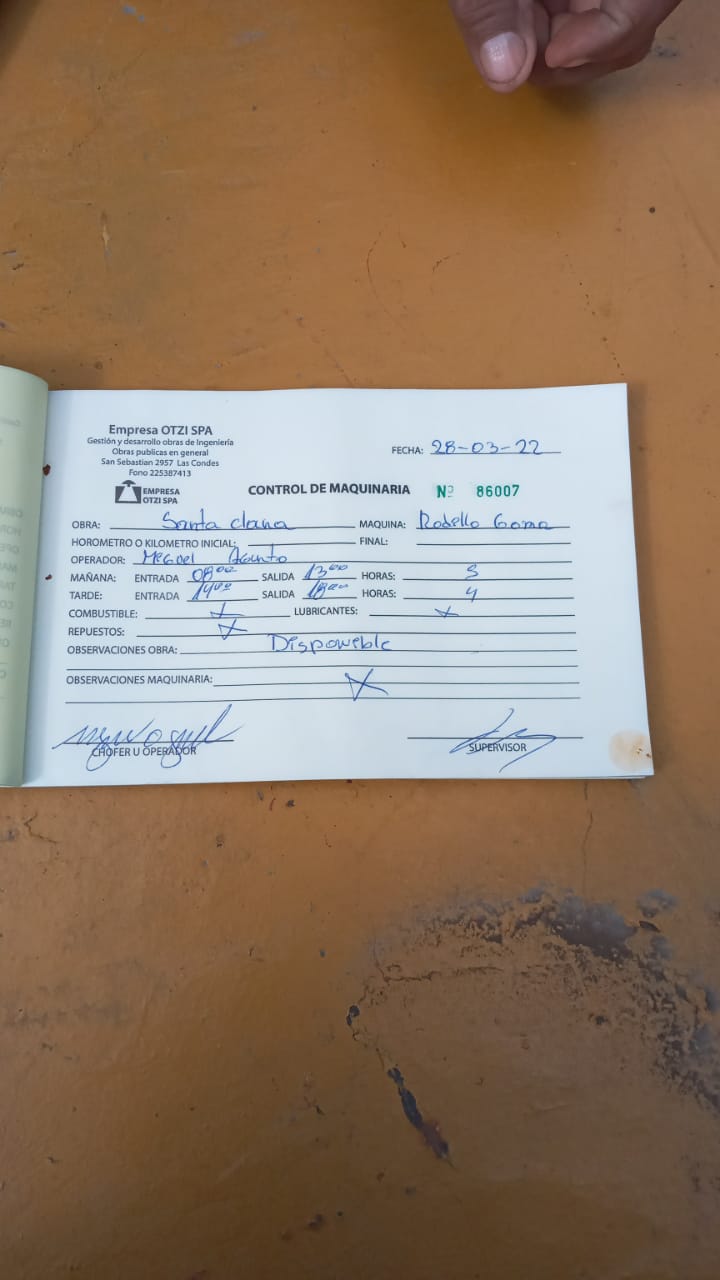 Empresa OTZI SPA
Gestión y desarrollo obras de Ingeniería
Obras publicas en general
San Sebastian 2957 Las Condes
Fono 225387413
EMPRESA
OTZI SPA
FECHA: 28-03-22
CONTROL DE MAQUINARIA Nº 86007
OBRA: Santa clara MAQUINA: Rodello Goma
HOROMETRO O KILOMETRO INICIAL: FINAL:
OPERADOR: Meguel
MAÑANA: ENTRADA 08:00 SALIDA 13:00 HORAS: 5
TARDE: ENTRADA 14:00 SALIDA 18:00 HORAS: 4
COMBUSTIBLE: X LUBRICANTES: X
REPUESTOS: X
OBSERVACIONES OBRA: Disponeble
OBSERVACIONES MAQUINARIA: X
CHOFER U OPERADOR SUPERVISOR